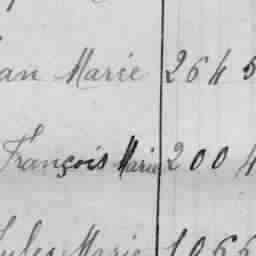 an Marie 2645
François Marie 2004
Jules Marie 1066